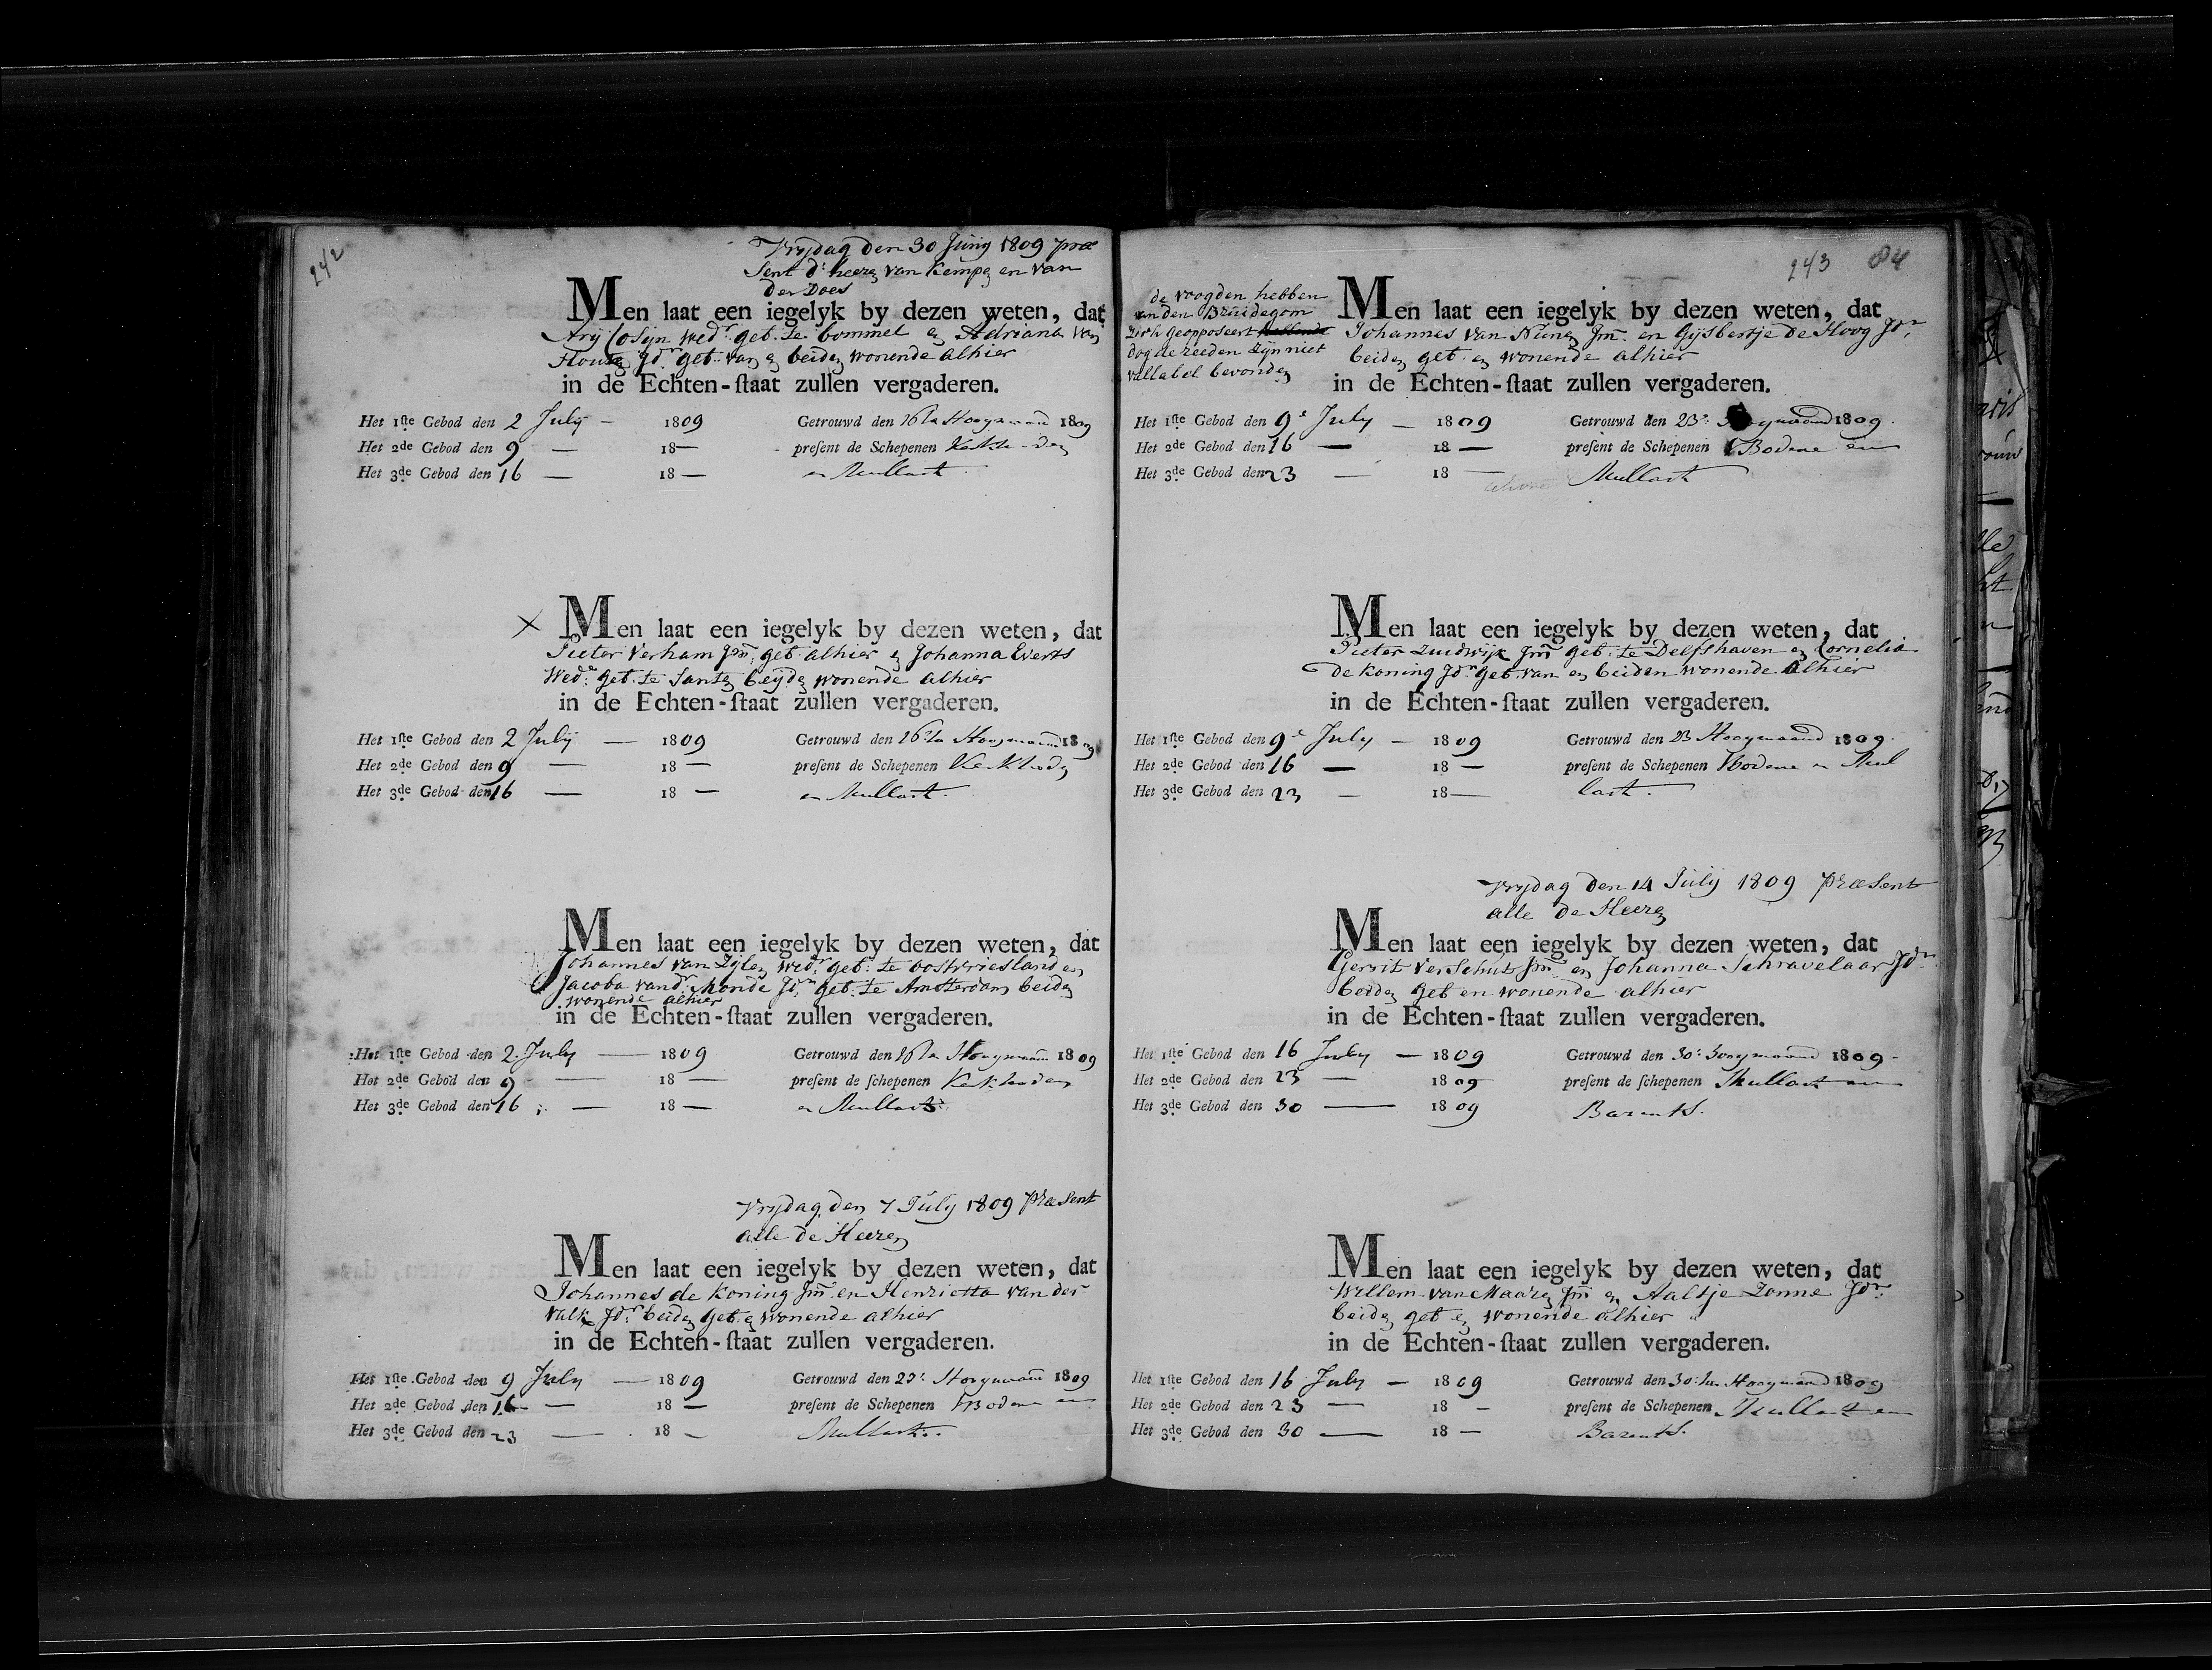 242
Vrydag den 30 Juny 1809 præ
sent d' heeren van Kempen en van
der Does
Men laat een iegelyk by dezen weten, dat
Ary Cosijn Wedr. geb. te bommel en Adriana van
Houten Jdr. geb. van en beiden wonende alhier
in de Echten-staat zullen vergaderen.
Het 1ste Gebod den 2 July — 1809 Getrouwd den 16ten Hooymaand 1809
Het 2de Gebod den 9 — 18— present de Schepenen Kerkhoden
Het 3de Gebod den 16 — 18— en Mullart
Men laat een iegelyk by dezen weten, dat
Pieter Verham Jm. geb. alhier en Johanna Everts
Wede. geb. te Santen beyden wonende alhier
in de Echten-staat zullen vergaderen.
Het 1ste Gebod den 2 July — 1809 Getrouwd den 16den Hooymaand 1809
Het 2de Gebod den 9 — 18— present de Schepenen Kerkhoden
Het 3de Gebod den 16 — 18— en Mullart.
Men laat een iegelyk by dezen weten, dat
Johannes van Zijlen Wedr. geb. te Oostvriesland en
Jacoba vand. Monde Jdr. geb. te Amsterdam beiden
wonende alhier
in de Echten-staat zullen vergaderen.
Het 1ste Gebod den 2. July — 1809 Getrouwd den 16den Hooymaand 1809
Het 2de Gebod den 9 — 18— present de schepenen Kerkhoden
Het 3de Gebod den 16 — 18— en Mullart
Vrydag den 7 July 1809 Præsent
alle de Heeren
Men laat een iegelyk by dezen weten, dat
Johannes de Koning Jm. en Henrietta van der
Valk Jdr. beiden geb. en wonende alhier
in de Echten-staat zullen vergaderen.
Het 1ste Gebod den 9 July — 1809 Getrouwd den 23e Hooymaand 1809
Het 2de Gebod den 16 — 18— present de Schepenen Bodene en
Het 3de Gebod den 23 — 18— Mullart.
243 84
de voogden hebben
van den Bruidegom
zich geopposeert
dog de reeden zijn niet
vallabel bevonden
Men laat een iegelyk by dezen weten, dat
Johannes van Nunen Jm. en Gijsbertje de Hoog Jdr.
beiden geb. en wonende alhier
in de Echten-staat zullen vergaderen.
Het 1ste Gebod den 9e July — 1809 Getrouwd den 23e Hooymaand 1809.
Het 2de Gebod den 16 — 18— present de Schepenen Bodene en
Het 3de Gebod den 23 — 18— Mullart
Men laat een iegelyk by dezen weten, dat
Pieter Zuidwijk Jm. geb. te Delfshaven en Cornelia
de Koning Jdr. geb. van en beiden wonende alhier
in de Echten-staat zullen vergaderen.
Het 1ste Gebod den 9e July — 1809 Getrouwd den 23 Hooymaand 1809.
Het 2de Gebod den 16 — 18— present de Schepenen Bodene en Mul
Het 3de Gebod den 23 — 18— lart.
Vrydag den 14 July 1809 Præsent
alle de Heeren
Men laat een iegelyk by dezen weten, dat
Gerrit Verschut Jm. en Johanna Schravelaar Jdr.
beiden geb en wonende alhier
in de Echten-staat zullen vergaderen.
Het 1ste Gebod den 16 July — 1809 Getrouwd den 30e Hooymaand 1809
Het 2de Gebod den 23 — 1809 present de schepenen Mullart en
Het 3de Gebod den 30 — 1809 Barents.
Men laat een iegelyk by dezen weten, dat
Willem van Maaren Jm en Aaltje Zonne Jdr.
beiden geb en wonende alhier
in de Echten-staat zullen vergaderen.
Het 1ste Gebod den 16 July — 1809 Getrouwd den 30ten Hooymaand 1809
Het 2de Gebod den 23 — 18— present de Schepenen Mullart en
Het 3de Gebod den 30 — 18— Barents.